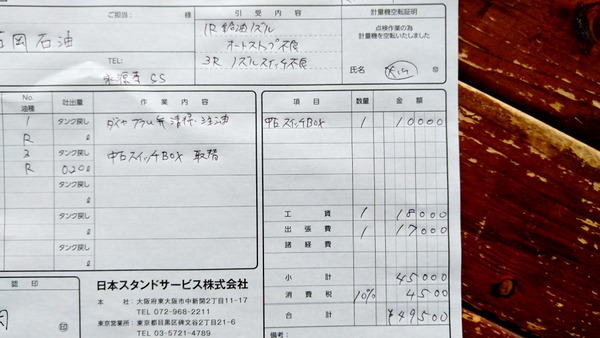 ご担当： 様
引 受 内 容
計量機空転証明
岡石油
1R 給油ノズル
オートストップ不良
点検作業の為
計量機を空転いたしました
TEL:
3R ノズルスイッチ不良
SS
氏名
印
No.
油種
吐出量
作 業 内 容
項 目
数量
金 額
1
タンク戻し
ダイヤフラム弁 清掃・注油
中古スイッチBOX
1
10000
R
ℓ
3
タンク戻し
中古スイッチBOX 取替
R
0.20ℓ
タンク戻し
ℓ
タンク戻し
ℓ
タンク戻し
ℓ
工 賃
1
18000
出 張 費
1
17000
諸 経 費
小 計
45000
消 費 税
10%
4500
合 計
¥49500
備考：
認 印
印
日本スタンドサービス株式会社
本 社：大阪府東大阪市中新開2丁目11-17
TEL 072-968-2211
東京営業所：東京都目黒区碑文谷2丁目21-6
TEL 03-5721-4789